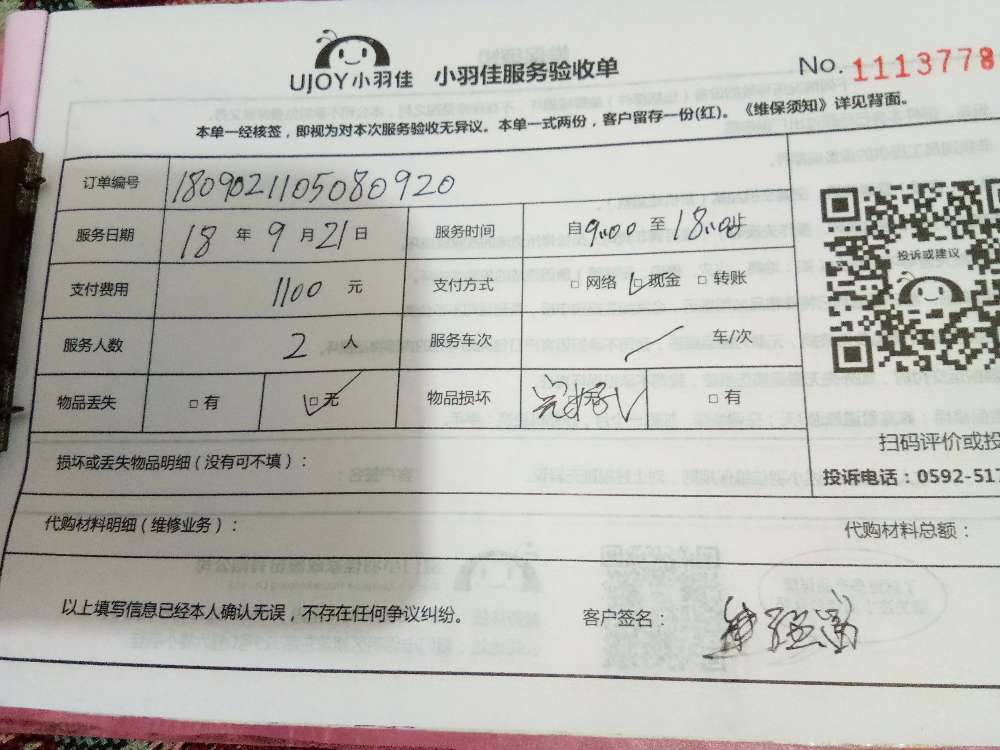 UJOY小羽佳 小羽佳服务验收单 No. 1113778
本单一经核签，即视为对本次服务验收无异议。本单一式两份，客户留存一份(红)。《维保须知》详见背面。
订单编号 180902110508 0920
服务日期 18 年 9 月 21 日 服务时间 自9:00 至 18:00止
支付费用 1100 元 支付方式 □ 网络 □ 现金 □ 转账
服务人数 2 人 服务车次 车/次
物品丢失 □ 有 □ 无 物品损坏 □ 有
投诉或建议
扫码评价或投
损坏或丢失物品明细（没有可不填）：
投诉电话：0592-517
代购材料明细（维修业务）： 代购材料总额：
以上填写信息已经本人确认无误，不存在任何争议纠纷。 客户签名：